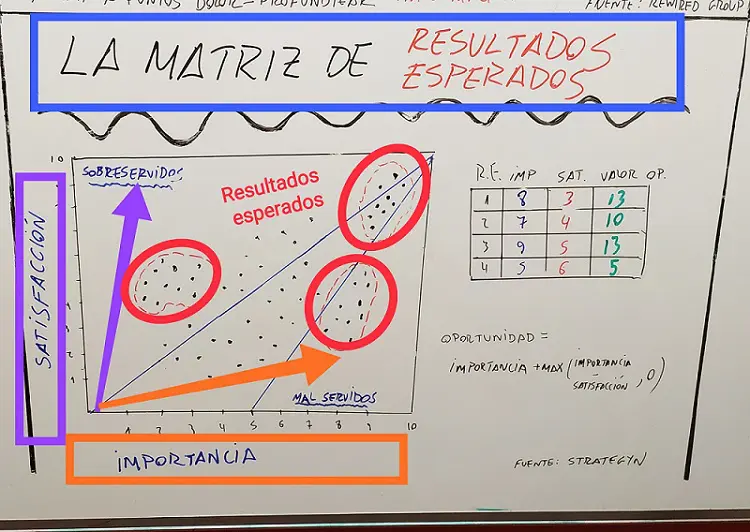 FUENTE: REWIRED GROUP
LA MATRIZ DE RESULTADOS
ESPERADOS
10
SOBRESERVIDOS
Resultados
esperados
SATISFACCIÓN
MAL SERVIDOS
1 2 3 4 5 6 7 8 9 10
IMPORTANCIA
R.E. IMP SAT. VALOR OP.
1 8 3 13
2 7 4 10
3 9 5 13
4 5 6 5
OPORTUNIDAD =
IMPORTANCIA + MAX (IMPORTANCIA - SATISFACCIÓN, 0)
FUENTE: STRATEGYN